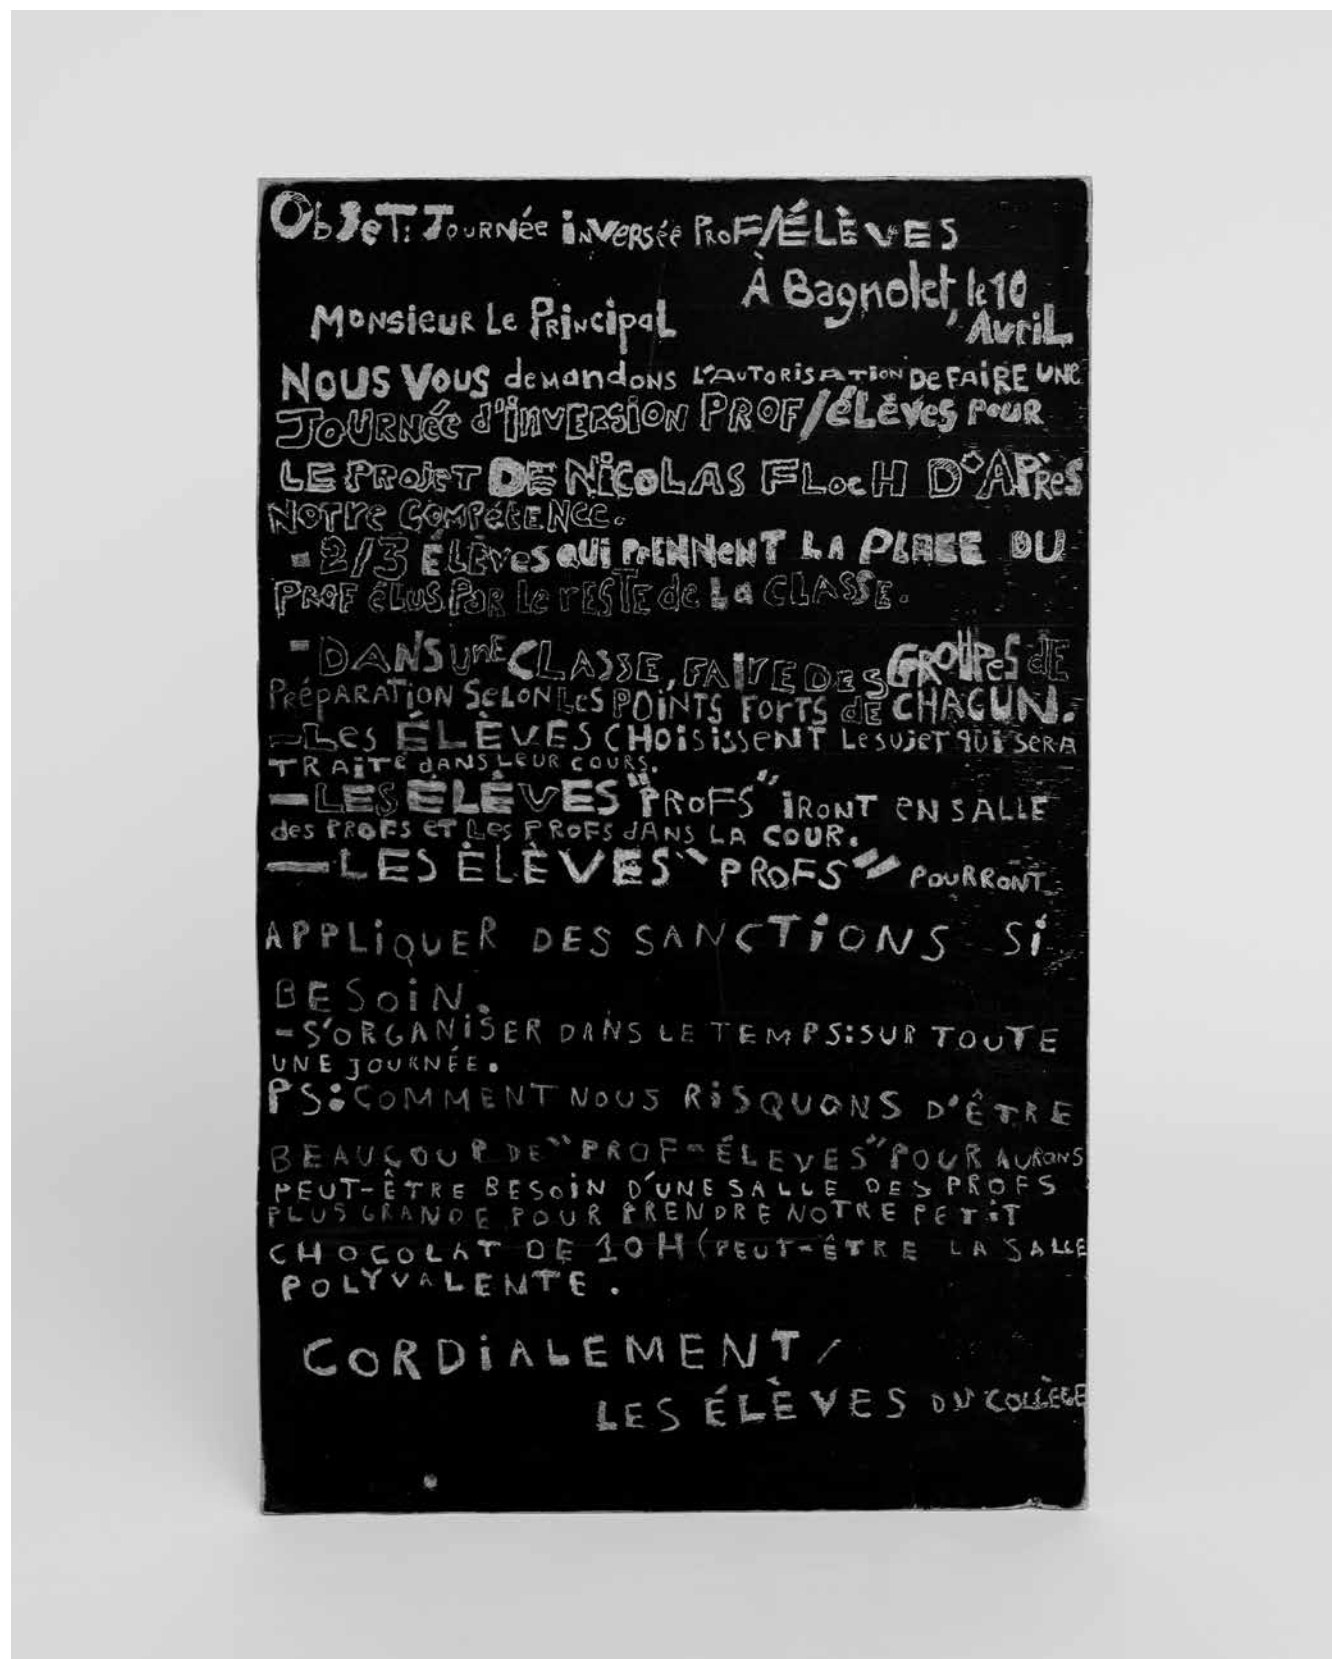 Objet: Journée inversée Prof/Élèves
À Bagnolet, le 10
Avril
Monsieur Le Principal
Nous vous demandons l'autorisation de faire une
Journée d'inversion Prof/Élèves pour
le projet de Nicolas Floc'h d'après
notre compétence.
- 2/3 Élèves qui prennent la place du
prof élus par le reste de la classe.
- Dans une classe, faire des groupes de
préparation selon les points forts de chacun.
- Les élèves choisissent le sujet qui sera
traité dans leur cours.
- Les élèves "profs" iront en salle
des profs et les profs dans la cour.
- Les élèves "profs" pourront
APPLiQUER DES SANCTiONS Si
BESOiN.
- S'ORGANiSER DANS LE TEMPS: SUR TOUTE
UNE JOURNÉE.
PS: COMMENT NOUS RiSQUONS D'ÊTRE
BEAUCOUP DE "PROF-ÉLEVES" POUR AURONS
PEUT-ÊTRE BESOiN D'UNE SALLE DES PROFS
PLUS GRANDE POUR PRENDRE NOTRE PETiT
CHOCOLAT DE 10H (PEUT-ÊTRE LA SALLE
POLYVALENTE.
CORDiALEMENT,
LES ÉLÈVES DU COLLÈGE